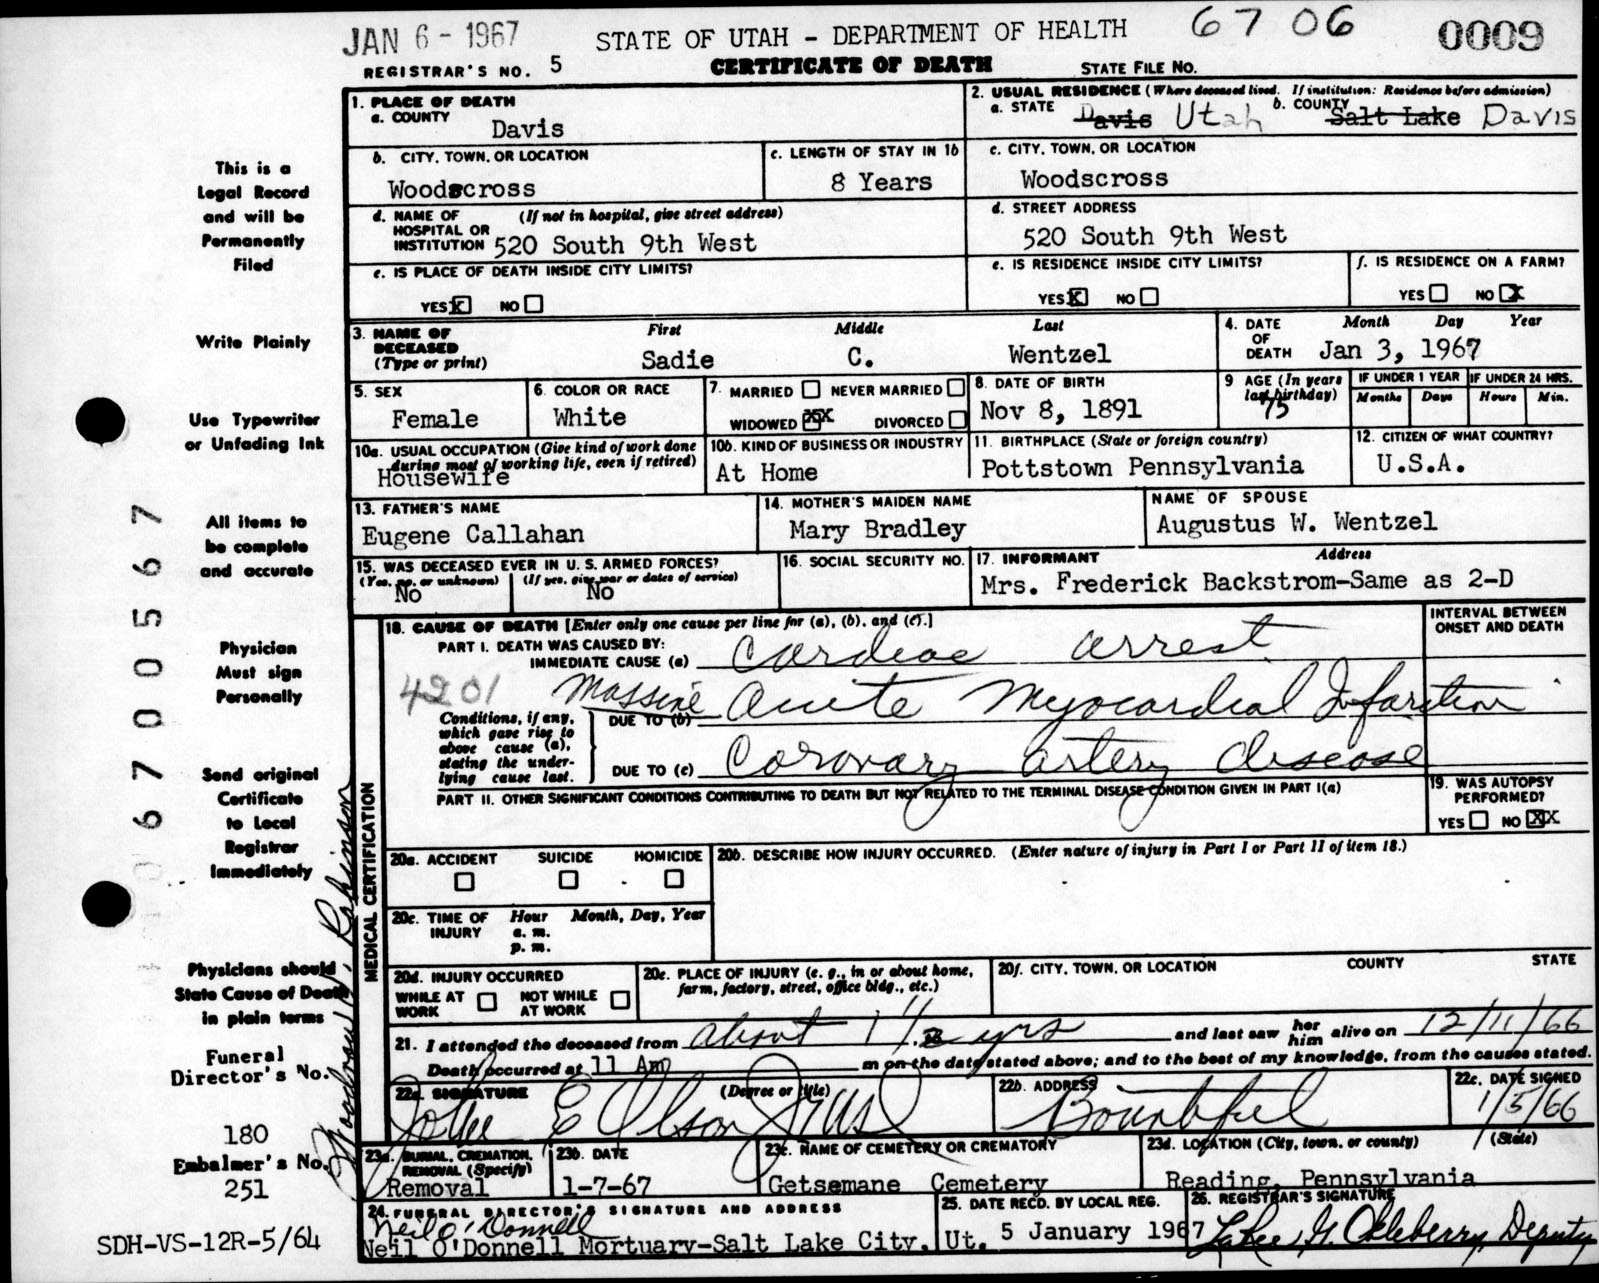 JAN 6 - 1967 STATE OF UTAH - DEPARTMENT OF HEALTH 6706 0009
REGISTRAR'S NO. 5 CERTIFICATE OF DEATH STATE FILE NO.
1. PLACE OF DEATH
a. COUNTY
Davis
2. USUAL RESIDENCE (Where deceased lived. If institution: Residence before admission)
a. STATE Davis Utah b. COUNTY Salt Lake Davis
b. CITY, TOWN, OR LOCATION
Woodscross
c. LENGTH OF STAY IN 1b
8 Years
c. CITY, TOWN, OR LOCATION
Woodscross
d. NAME OF (If not in hospital, give street address)
HOSPITAL OR
INSTITUTION 520 South 9th West
d. STREET ADDRESS
520 South 9th West
e. IS PLACE OF DEATH INSIDE CITY LIMITS?
YES X NO
e. IS RESIDENCE INSIDE CITY LIMITS?
YES X NO
f. IS RESIDENCE ON A FARM?
YES NO X
3. NAME OF First Middle Last
DECEASED
(Type or print) Sadie C. Wentzel
4. DATE Month Day Year
OF
DEATH Jan 3, 1967
5. SEX
Female
6. COLOR OR RACE
White
7. MARRIED NEVER MARRIED
WIDOWED XX DIVORCED
8. DATE OF BIRTH
Nov 8, 1891
9 AGE (In years
last birthday)
75
IF UNDER 1 YEAR IF UNDER 24 HRS.
Months Days Hours Min.
10a. USUAL OCCUPATION (Give kind of work done
during most of working life, even if retired)
Housewife
10b. KIND OF BUSINESS OR INDUSTRY
At Home
11. BIRTHPLACE (State or foreign country)
Pottstown Pennsylvania
12. CITIZEN OF WHAT COUNTRY?
U.S.A.
13. FATHER'S NAME
Eugene Callahan
14. MOTHER'S MAIDEN NAME
Mary Bradley
NAME OF SPOUSE
Augustus W. Wentzel
15. WAS DECEASED EVER IN U. S. ARMED FORCES?
(Yes, no, or unknown) (If yes, give war or dates of service)
No No
16. SOCIAL SECURITY NO.
17. INFORMANT Address
Mrs. Frederick Backstrom-Same as 2-D
MEDICAL CERTIFICATION
18. CAUSE OF DEATH [Enter only one cause per line for (a), (b), and (c).]
INTERVAL BETWEEN
ONSET AND DEATH
PART I. DEATH WAS CAUSED BY:
IMMEDIATE CAUSE (a) Cardiac arrest
4201 Massive Acute Myocardial Infarction
DUE TO (b)
Conditions, if any,
which gave rise to
above cause (a),
stating the under-
lying cause last.
DUE TO (c) Coronary artery disease
PART II. OTHER SIGNIFICANT CONDITIONS CONTRIBUTING TO DEATH BUT NOT RELATED TO THE TERMINAL DISEASE CONDITION GIVEN IN PART I(a)
19. WAS AUTOPSY
PERFORMED?
YES NO XX
20a. ACCIDENT SUICIDE HOMICIDE
20b. DESCRIBE HOW INJURY OCCURRED. (Enter nature of injury in Part I or Part II of item 18.)
20c. TIME OF Hour Month, Day, Year
INJURY a. m.
p. m.
20d. INJURY OCCURRED
WHILE AT WORK NOT WHILE AT WORK
20e. PLACE OF INJURY (e. g., in or about home,
farm, factory, street, office bldg., etc.)
20f. CITY, TOWN, OR LOCATION COUNTY STATE
21. I attended the deceased from about 1 1/2 yrs and last saw her him alive on 12/11/66
Death occurred at 11 Am m on the date stated above; and to the best of my knowledge, from the causes stated.
22a. SIGNATURE (Degree or title)
E Olson
22b. ADDRESS
Bountiful
22c. DATE SIGNED
1/5/66
23a. BURIAL, CREMATION,
REMOVAL (Specify)
Removal
23b. DATE
1-7-67
23c. NAME OF CEMETERY OR CREMATORY
Getsemane Cemetery
23d. LOCATION (City, town, or county) (State)
Reading, Pennsylvania
24. FUNERAL DIRECTOR'S SIGNATURE AND ADDRESS
Neil O'Donnell
Neil O'Donnell Mortuary-Salt Lake City, Ut.
25. DATE RECD. BY LOCAL REG.
5 January 1967
26. REGISTRAR'S SIGNATURE
Deputy
This is a
Legal Record
and will be
Permanently
Filed
Write Plainly
Use Typewriter
or Unfading Ink
All items to
be complete
and accurate
Physician
Must sign
Personally
Send original
Certificate
to Local
Registrar
Immediately
Physicians should
State Cause of Death
in plain terms
Funeral
Director's No.
180
Embalmer's No.
251
SDH-VS-12R-5/64
06700567
Robinson